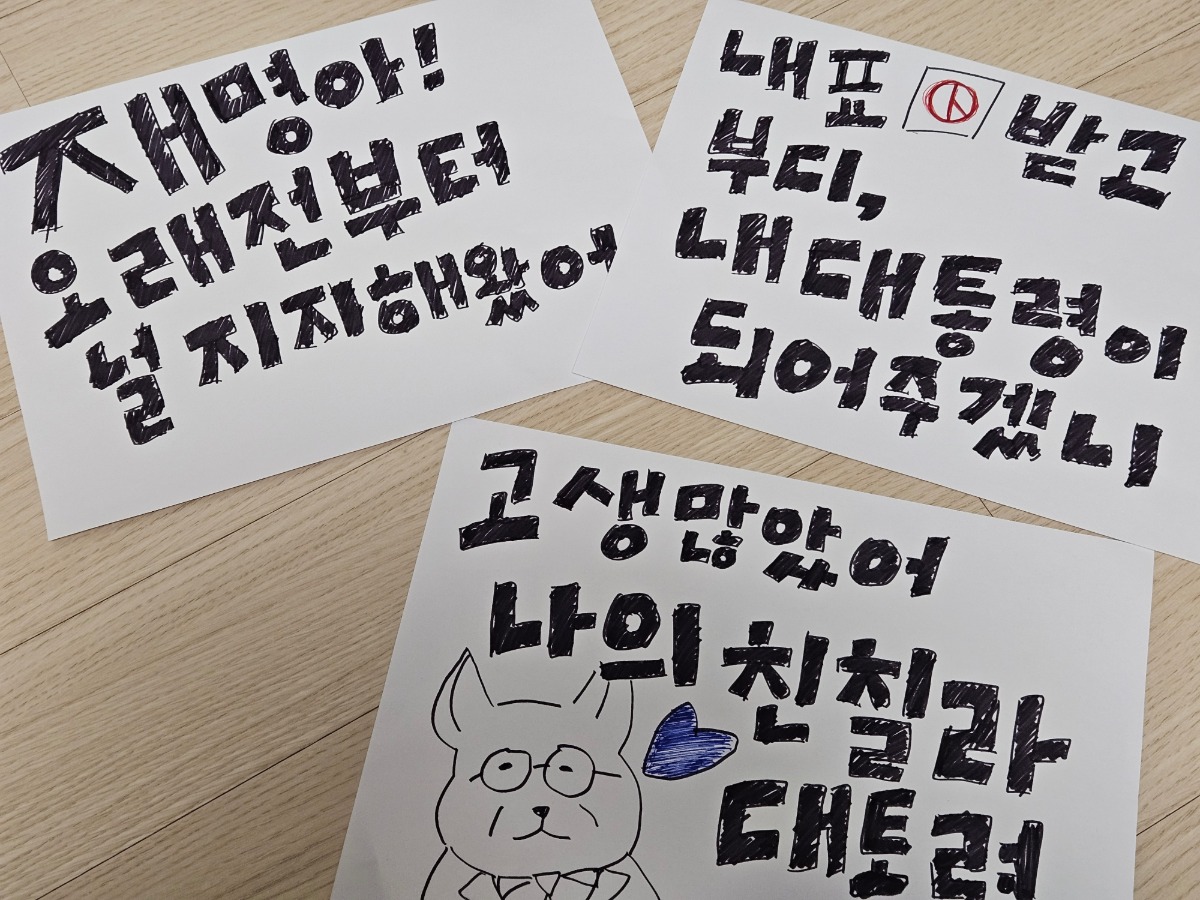 재명아!
오래전부터
널 지지해왔어
내 표 받고
부디,
내 대통령이
되어주겠니
고생많았어
나의 친칠라
대토려